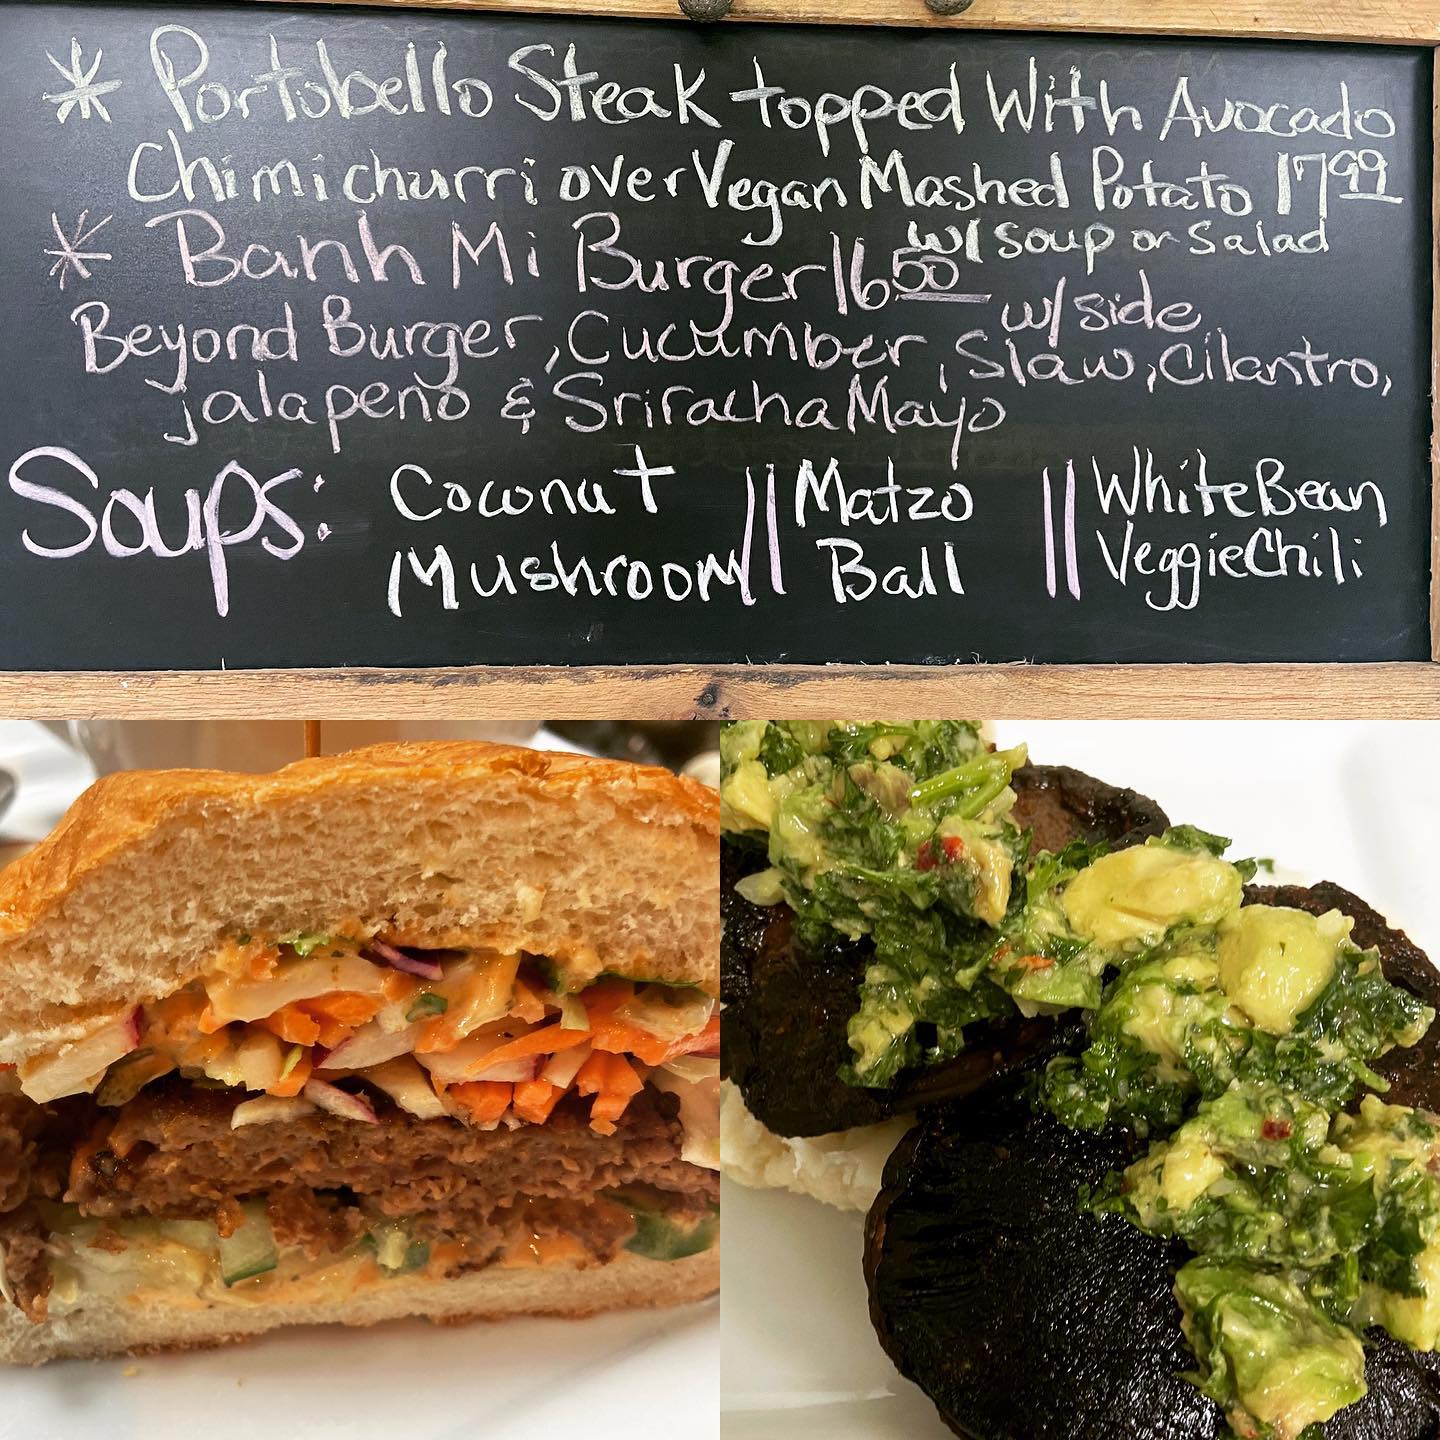 * Portobello Steak topped With Avocado
Chimichurri over Vegan Mashed Potato 17.99
w/ soup or Salad
* Banh Mi Burger 16.50
w/ side
Beyond Burger, Cucumber, Slaw, Cilantro,
jalapeño & Sriracha Mayo
Soups: Coconut || Matzo || White Bean
Mushroom Ball Veggie Chili